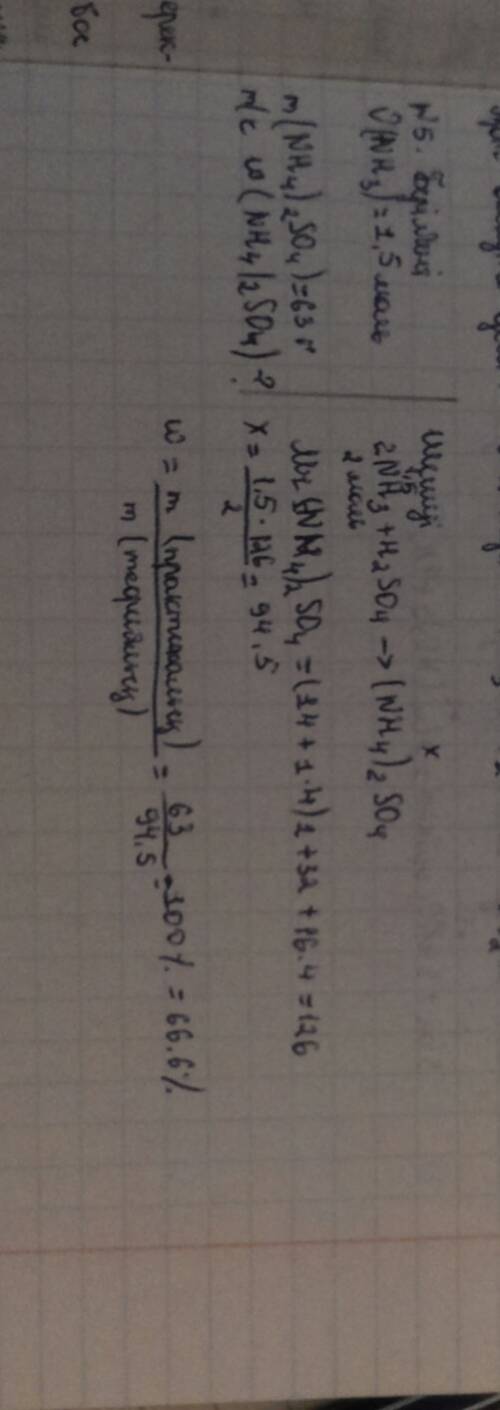 №5. Берілгені
υ(NH₃)=1,5 моль
m(NH₄)₂SO₄)=63 г
т/с ω(NH₄)₂SO₄)-?
Шешуі
1,5 x
2NH₃ + H₂SO₄ → (NH₄)₂SO₄
2 моль
Mr (NH₄)₂SO₄ = (14+1·4)2+32+16·4=126
x = 1.5·126/2 = 94.5
ω = m (практикалық)/m (теориялық) = 63/94.5 = 100% = 66.6%